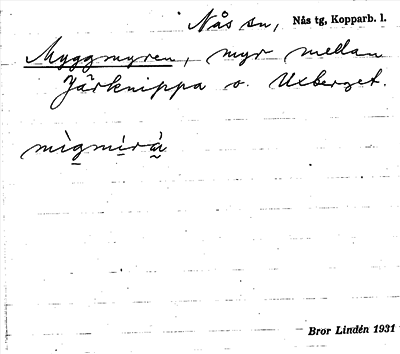 Nås sn, Nås tg, Kopparb. l.
Myggmyren, myr mellan
Järknippa o. Uxberget.
mìgmìrà̰
Bror Lindén 1931